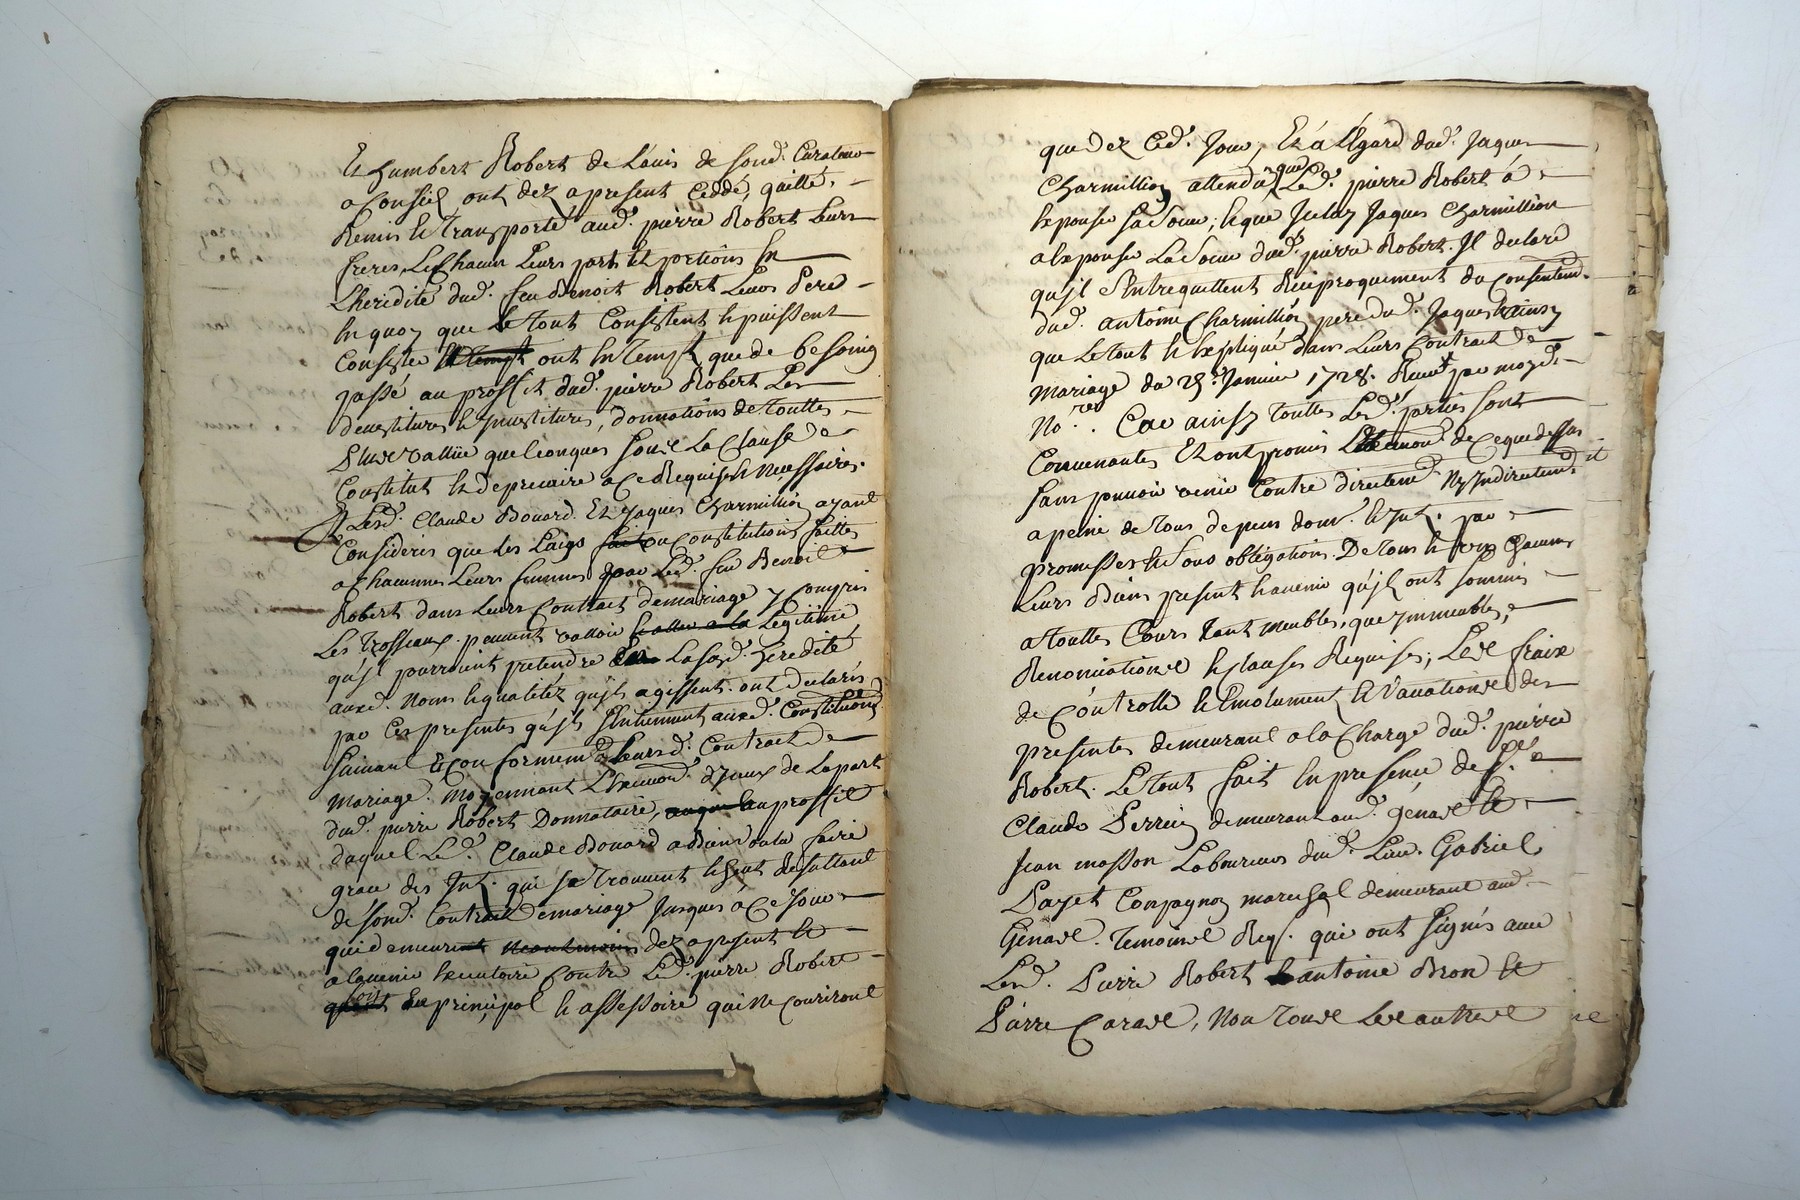 Et humbert Robert de Louis de sond. Curateur
a Conseil ont dez apresent Ceddé, quitté,
Remis et Transporté aud. pierre Robert Leurs
freres, Le Chacun Leurs parts et portions En
L'heridité dud. feu Benoit Robert Leurs Pere
En quoy que le tout Consistent et puissent
Consister ont En Temps que de besoing
passé au proffit dud. pierre Robert Les
devestitures et Investitures, donnations de Touttes
plusvallüe quelconques Sous La Clause de
Constitut et de precaire a Ce Requises et Necessaires.
Et Lesd. Claude Bouard Et Jaques Charmillion ayant
Considerés que les Laigs ou Constitutions faittes
a Chacunnes Leurs femmes par Led. feu Benoit
Robert dans Leurs Contract de mariage y Compris
Les Trosseaux peuvent valloir Legitime
qu'jl pourroient pretendre La sasd. héredité
auxd. Noms et qualitéz qu'jls agissent ont declarés
par Ces presentes qu'jls s'entiennent auxd. Constitutions
suivant Et Conformem. a Leursd. Contract de
Mariage. Moyennant L'execu.on d'Iceux de La part
dud. pierre Robert Donnataire, au proffit
duquel Led. Claude Bouard a Bien voulu faire
grace des Int. qui se Trouvent Resultant
de sond. Contract de mariage Jusques à Ce Jour
qui demeurent dez apresent et
a Lavenir Executoire Contre Led. pierre Robert
soit En principal et assessoire qui Ne Couriront
que dez Ced. Jour, Et à L'Egard dud. Jaques
Charmillion attendu que Led. pierre Robert à
Epousé sa soeur, et que Jceluy Jaques Charmillion
a Epousé La soeur dud. pierre Robert. Il declare
qu'jl s'Entrequittent Reciproquement du Consentem.
dud. antoine Charmillion pere dud. Jaques et ainsy
que Le tout Est Expliqué dans Leurs Contract de
Mariage du Janvier 1728. Receu par moyd.
No.re Car ainsy Touttes Lesd. parties sont
Convenantes Et ont promis de Ce que dessus
sans pouvoir venir Contre directem. Ny Indirectem.
a peine de Tous depens dom. et Int. par
promesses et sous obligations De Tous et Un Chacuns
Leurs Biens present et avenir qu'jl ont sommis
a Touttes Cours tant meubles, que jmmeubles,
Renonciations et Clauses Requises; Les fraix
de Controlle et Emolument et Vacations des
presentes demeurant a la Charge dud. pierre
Robert. Le Tout fait En presence de s.r
Claude Perrin demeurant aud. Genas et
Jean Masson Laboureur dud. Lieu. Gabriel
Payet Compagnon mareschal demeurant aud.
Genas. Temoins Req. qui ont signés avec
Led. Pierre Robert antoine Bron et
Pierre Caras, Non Tous Les autres